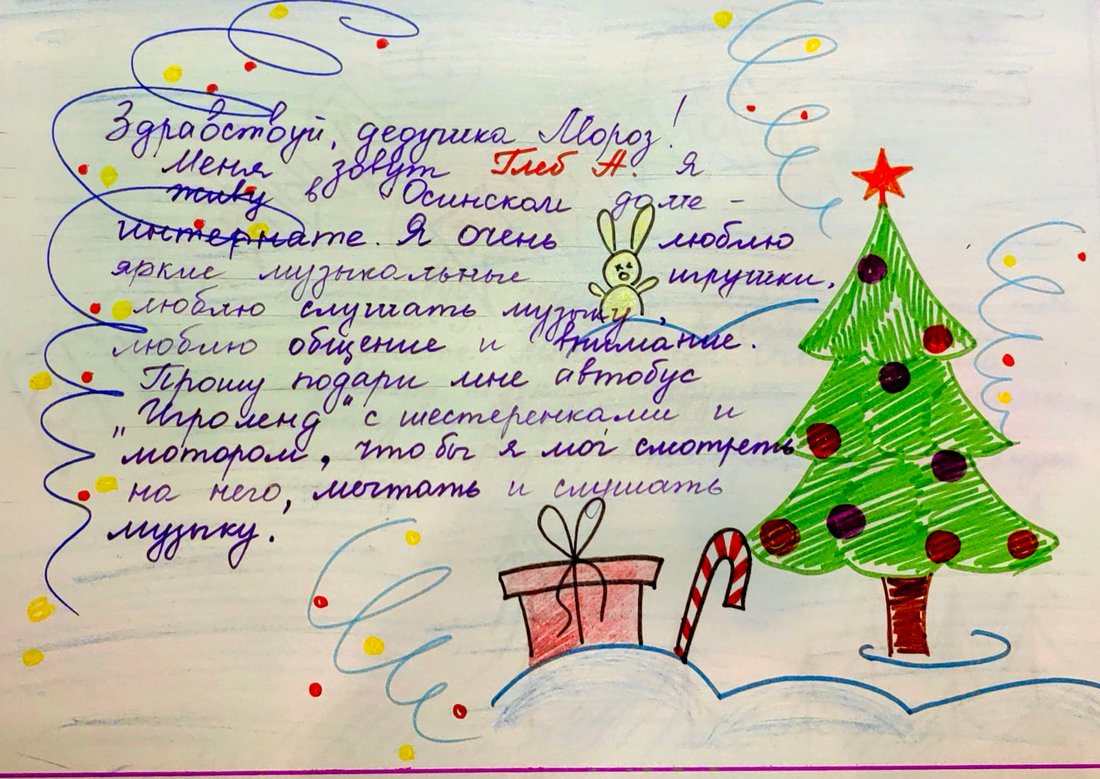 Здравствуй, дедушка Мороз!
Меня зовут Глеб А. Я
живу в Осинском доме -
интернате. Я очень люблю
яркие музыкальные игрушки,
люблю слушать музыку,
люблю общение и внимание.
Прошу подари мне автобус
"Игроленд" с шестеренками и
мотором, чтобы я мог смотреть
на него, мечтать и слушать
музыку.